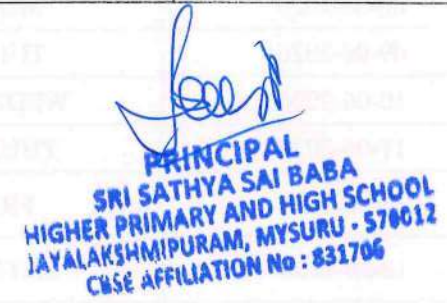 PRINCIPAL
SRI SATHYA SAI BABA
HIGHER PRIMARY AND HIGH SCHOOL
JAYALAKSHMIPURAM, MYSURU - 570012
CBSE AFFILIATION No : 831706